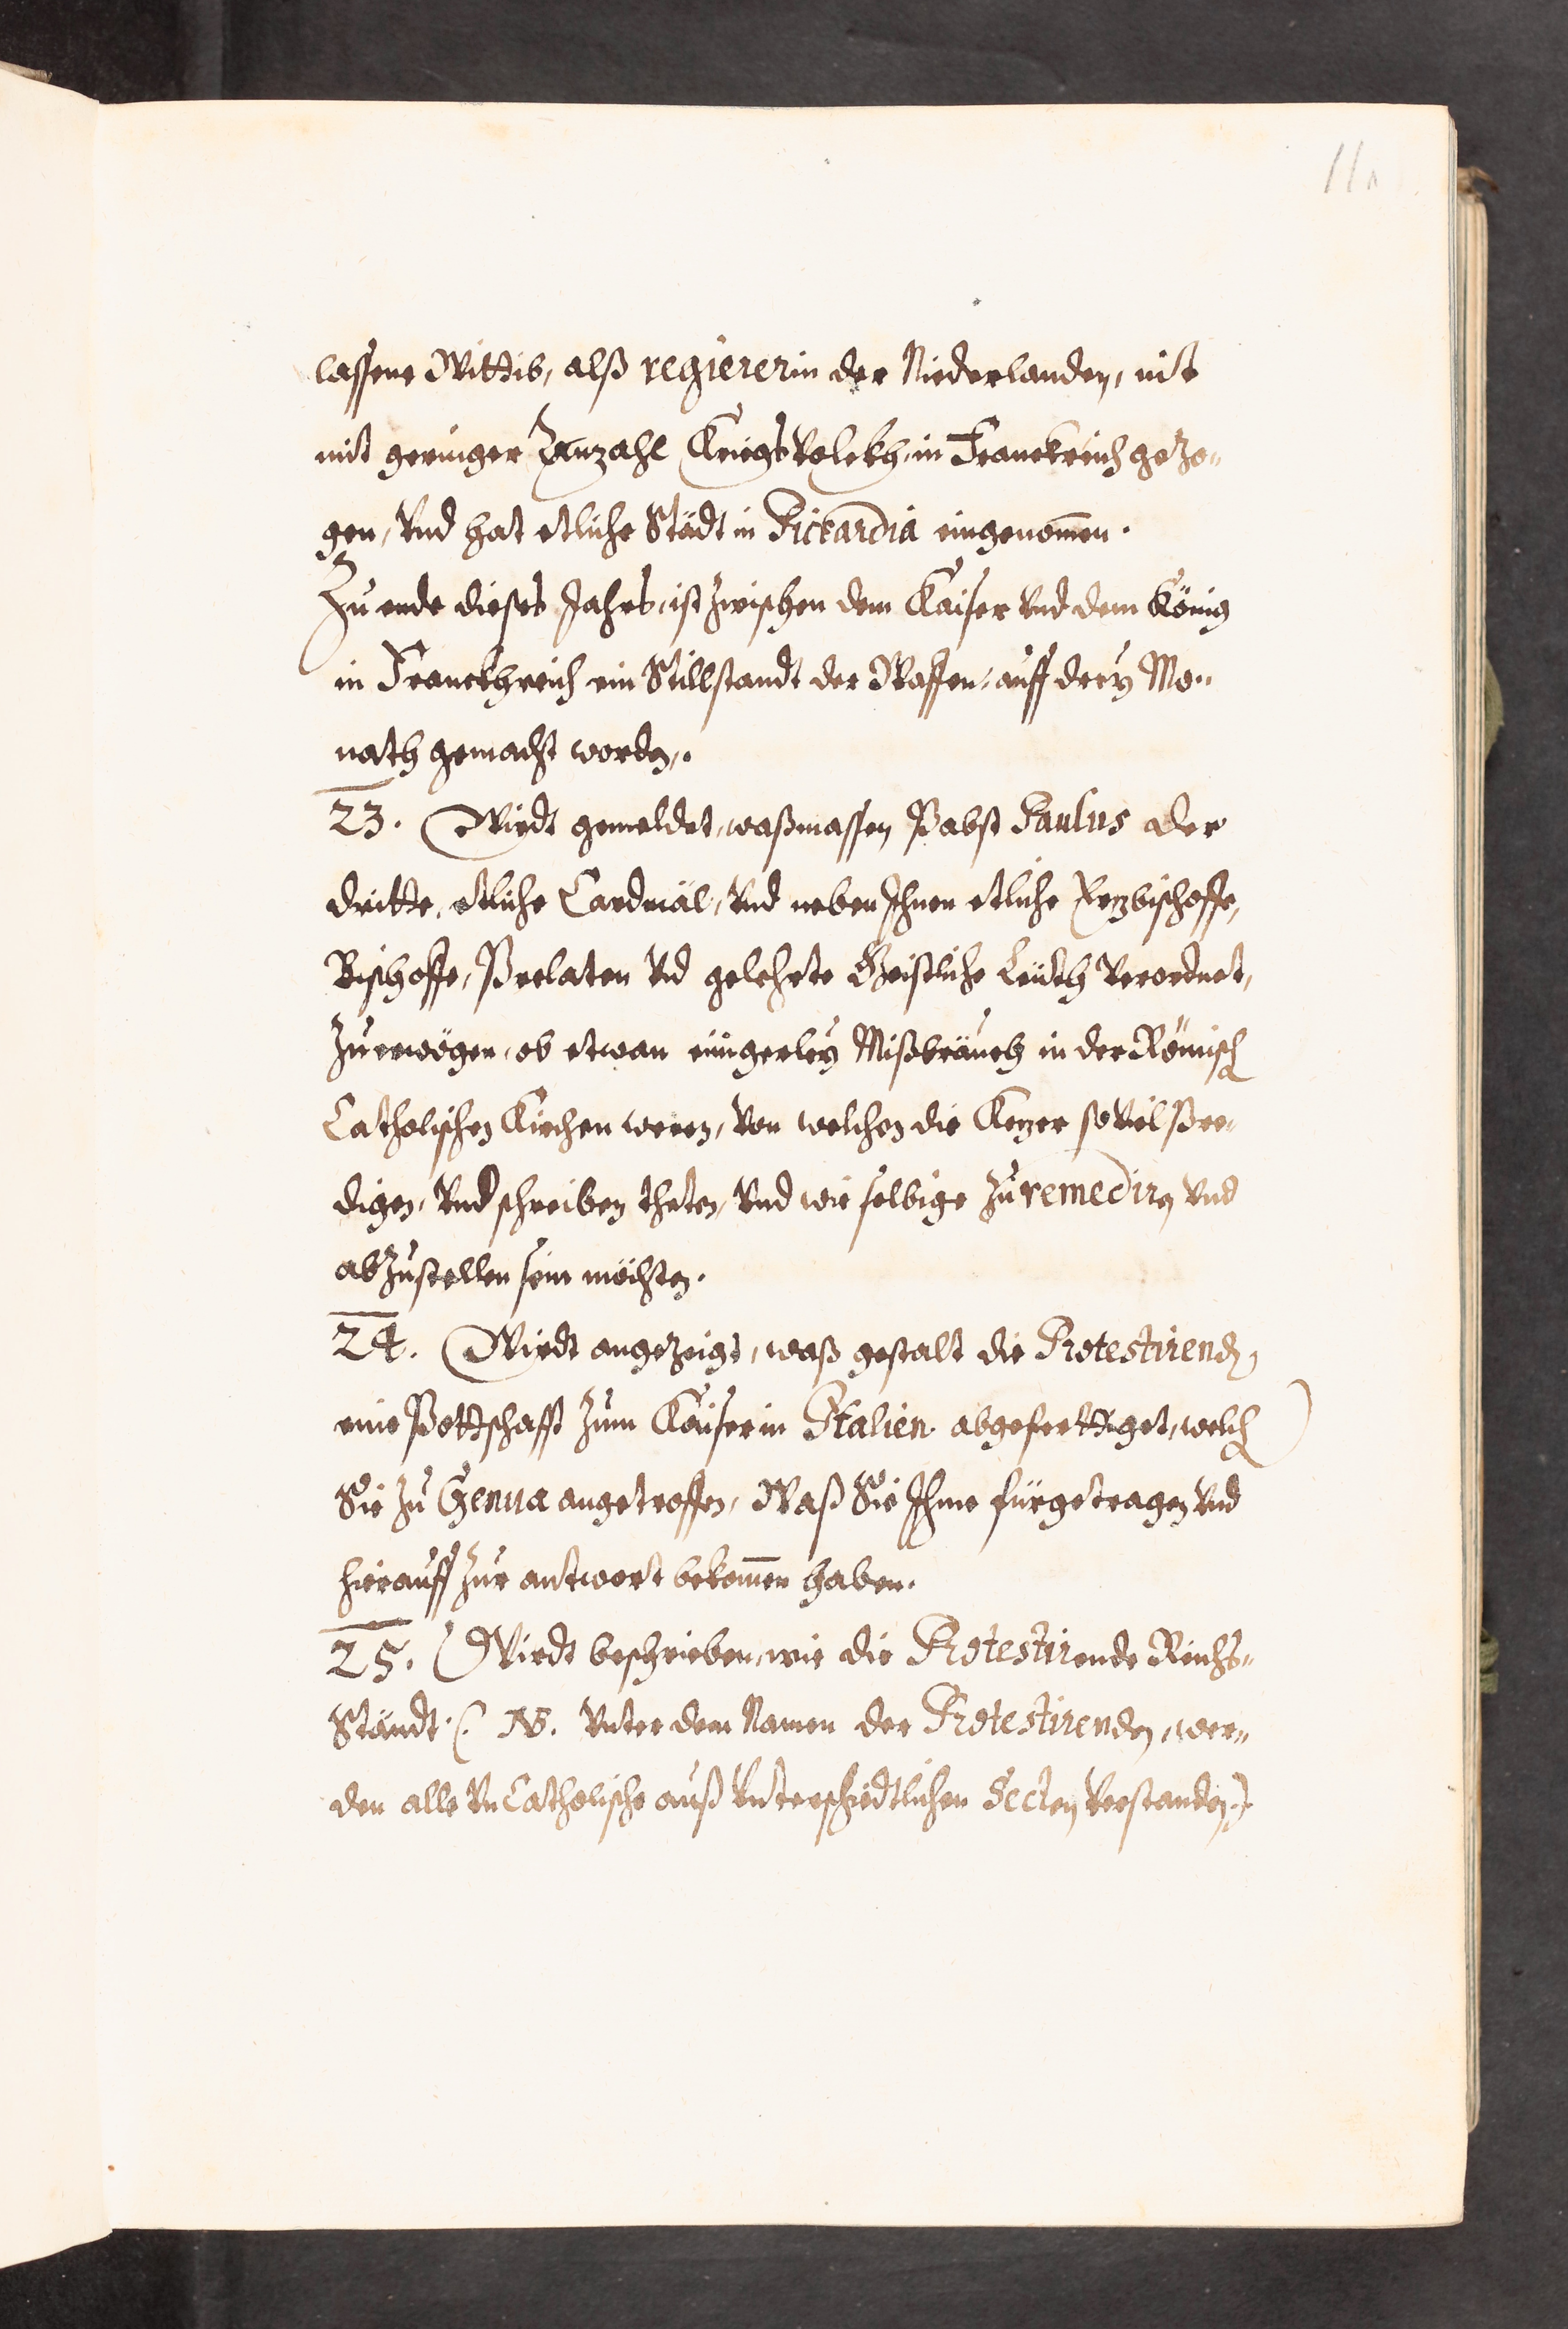 11
lassene Wittib, alß regiererin der Niederlanden, nit
mit geringer Anzahl Kriegsvolckh, in Franckreich gezo¬
gen, vnd hat etliche Städt in Pickardia eingenom̄en.
Zu ende dieses Jahrs, ist zwischen dem Kaiser vnd dem König
in Franckhreich ein Stillstandt der Waffen, auff drey Mo¬
nath gemacht worden.
23. Wirdt gemeldet, waßmassen Pabst Paulus der
dritte, etliche Cardinäl, vnd neben Ihnen etliche Erzbischoffe,
Bischoffe, Prelaten vnd gelehrte Geistliche Leüth verordnet,
zu erwögen, ob etwan einigerley Mißbräuch in der Römisch
Catholischen Kirchen weren, von welchen die Kezer so vil pre¬
digen, vnd schreiben theten, vnd wie selbige zu remediren vnd
abzustellen sein möchten.
24. Wirdt angezeigt, waß gestalt die Protestirenden,
eine Pottschafft zum Kaiser in Italien abgeferttiget, welch
Sie zu Genua angetroffen, Waß Sie Ihme fürgetragen vnd
hierauff zur antwort bekom̄en haben.
25. Wirdt beschrieben, wie die Protestirende Reichs¬
Ständt (: NB. Vnter dem Namen der Protestirenden, wer¬
den alle vn Catholische auß vnterschiedtlichen Secten verstanden:)